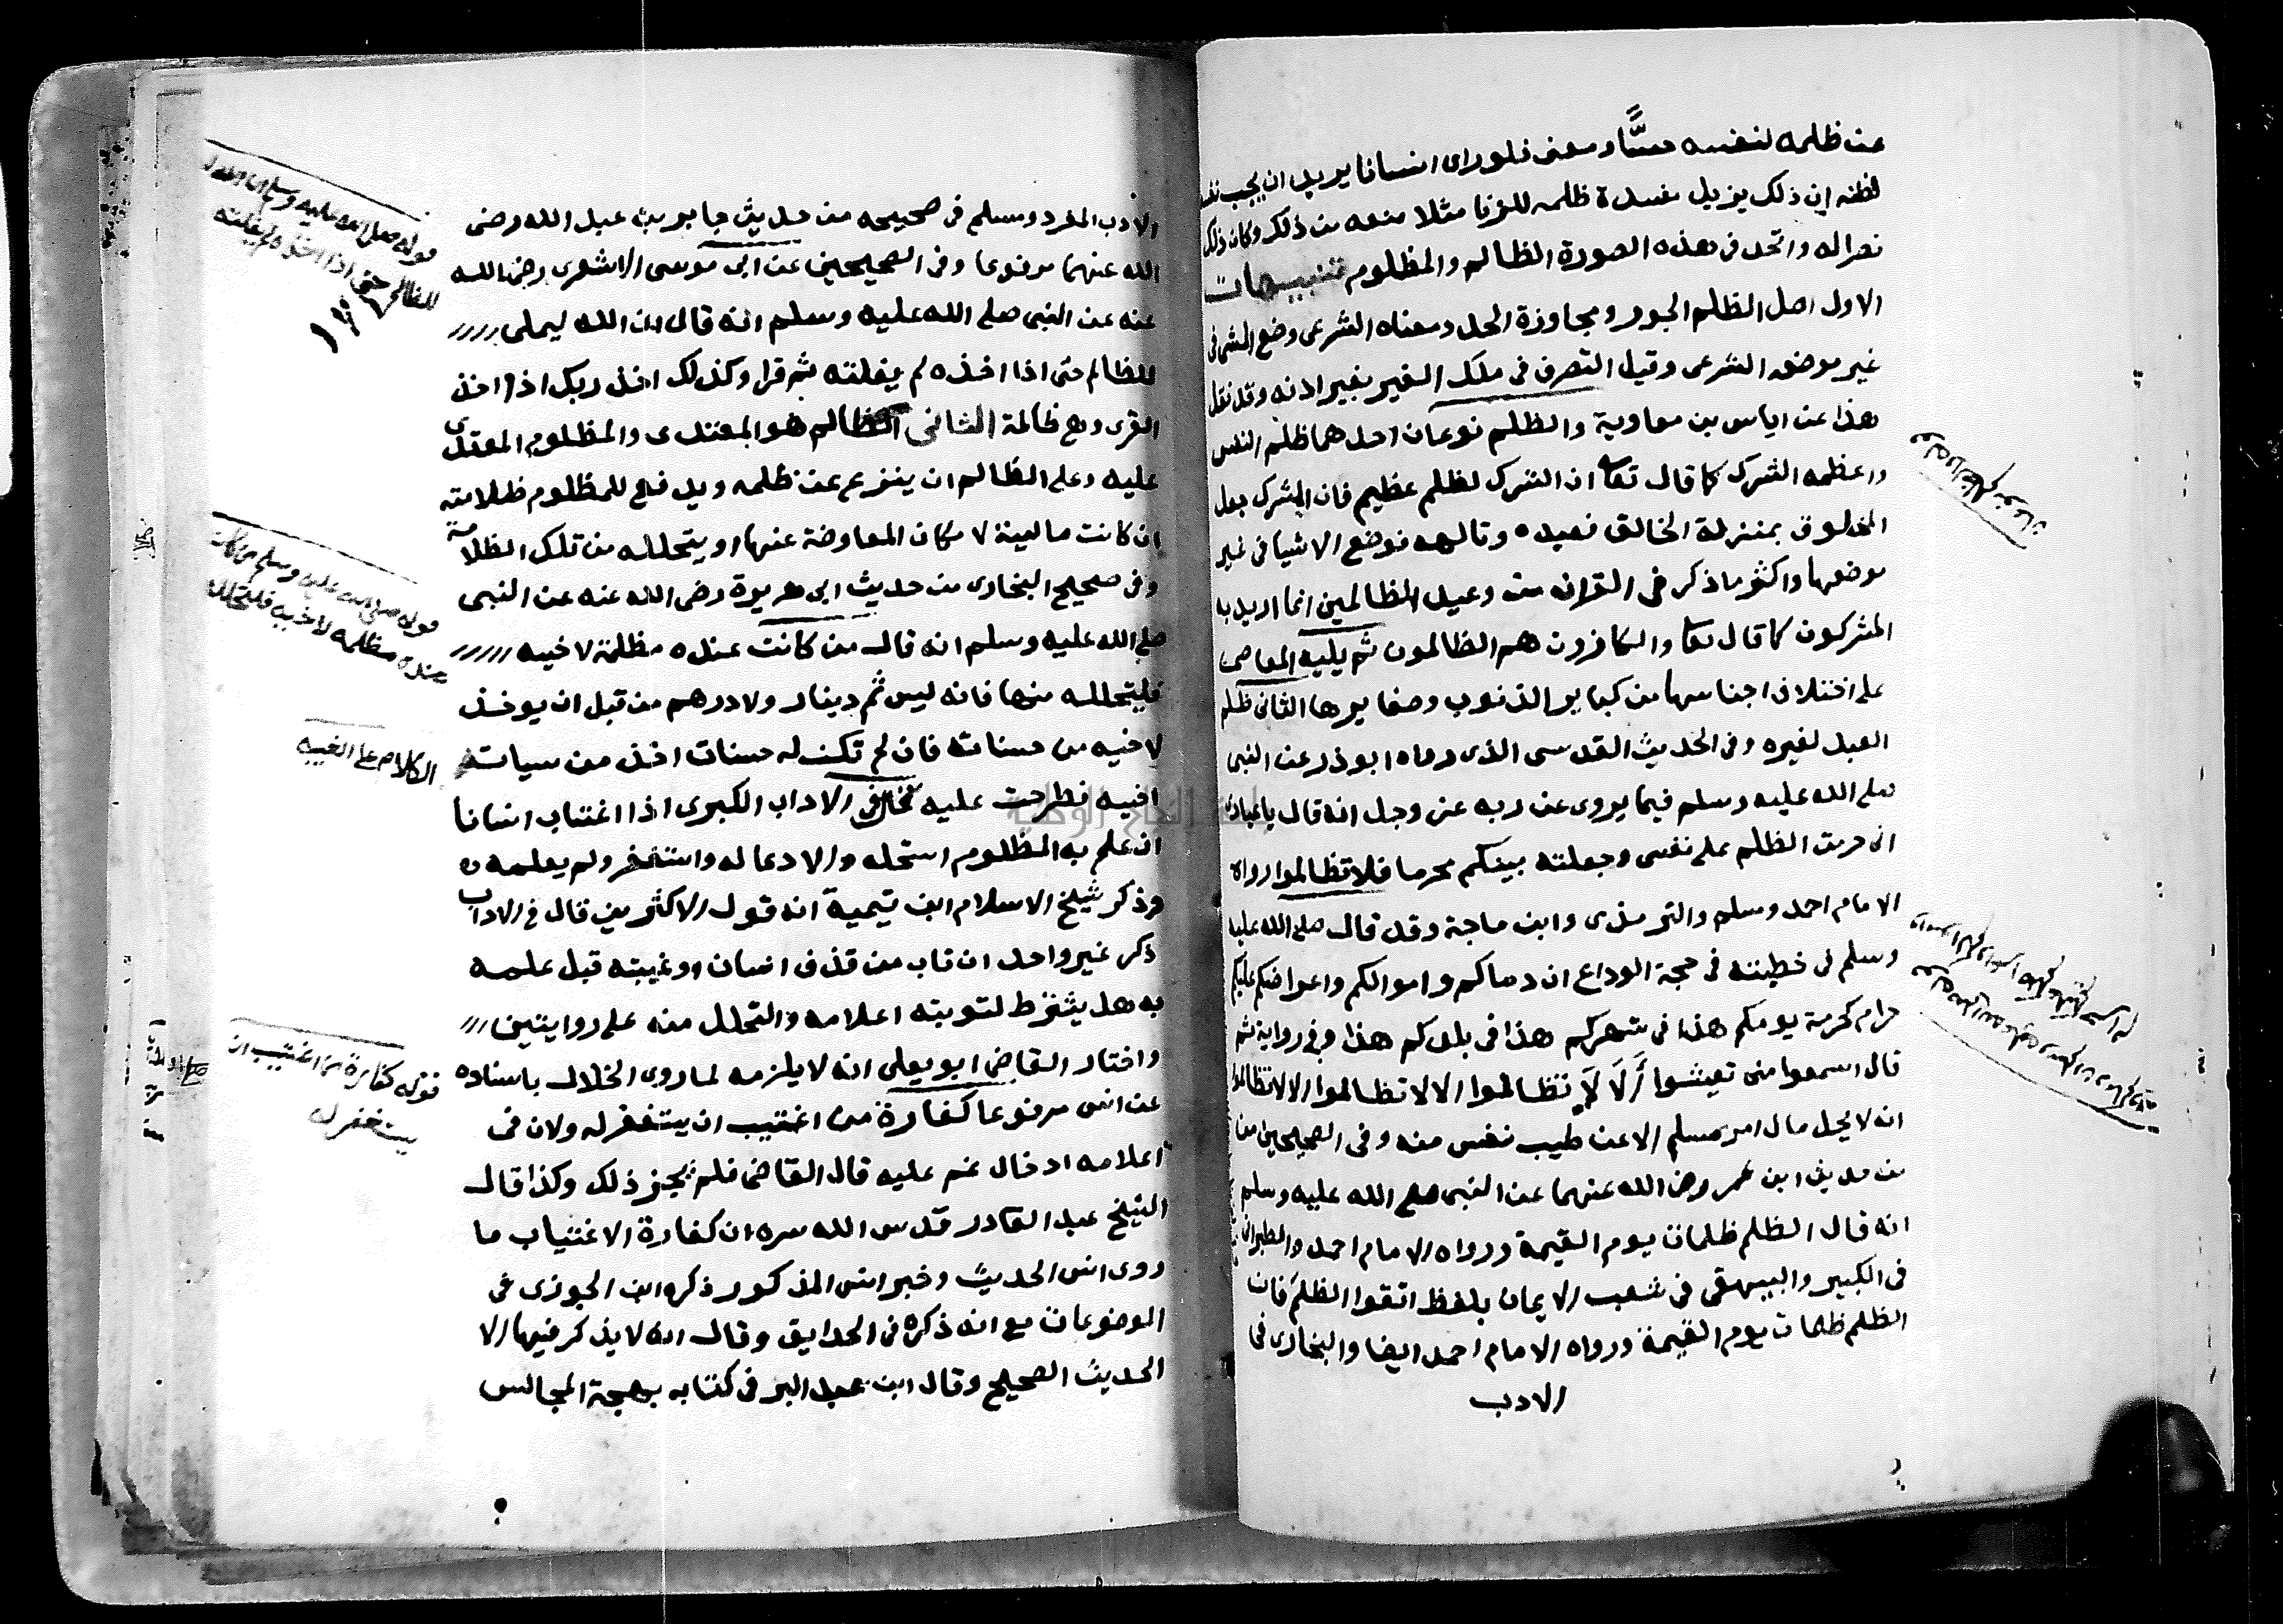 عن ظلمه لنفسه حسًّا ومعنى فلو راى انسانا يريد ان يجب نفسه
لظنه ان ذلك يزيل مفسدة ظلمه للزنا مثلا منعه من ذلك وكان ذلك
نصرا له واتحد فى هذه الصورة الظالم والمظلوم تنبيهات
الاول اصل الظلم الجور ومجاوزة الحد ومعناه الشرعى وضع الشى فى
غير موضعه الشرعى وقيل التصرف فى ملك الغير بغير اذنه وقد نقل
هذا عن اياس بن معاوية والظلم نوعان احدهما ظلم النفس
واعظمه الشرك كما قال تعا ان الشرك لظلم عظيم فان المشرك جعل
المخلوق بمنزلة الخالق فعبده وتالهه فوضع الاشيا فى غير
موضعها واكثر ما ذكر فى القران من وعيد الظالمين انما اريد به
المشركون كما قال تعا والكافرون هم الظالمون ثم يليه المعاصى
على اختلاف اجناسها من كباير الذنوب وصغايرها الثانى ظلم
العبد لغيره وفى الحديث القدسى الذى رواه ابو ذر عن النبى
صلى الله عليه وسلم فيما يروى عن ربه عز وجل انه قال يا عبادى
انى حرمت الظلم على نفسى وجعلته بينكم محرما فلا تظالموا رواه
الامام احمد ومسلم والترمذى وابن ماجة وقد قال صلى الله عليه
وسلم فى خطبته فى حجة الوداع ان دماكم واموالكم واعراضكم عليكم
حرام كحرمة يومكم هذا فى شهركم هذا فى بلدكم هذا وفى رواية ثم
قال اسمعوا منى تعيشوا أَلَا لَا تظالموا الا لا تظالموا الا لا تظالموا
انه لا يحل مال امر مسلم الا عن طيب نفس منه وفى الصحيحين من
من حديث ابن عمر رضى الله عنهما عن النبى صلى الله عليه وسلم
انه قال الظلم ظلمات يوم القيمة ورواه الامام احمد والطبرانى
فى الكبير والبيهقى فى شعب الايمان بلفظ اتقوا الظلم فان
الظلم ظلمات يوم القيمة ورواه الامام احمد ايضا والبخارى فى
الادب
الادب المفرد ومسلم فى صحيحه من حديث جابر بن عبد الله رضى
الله عنهما مرفوعا وفى الصحيحين عن ابى موسى الاشعرى رضى الله
عنه عن النبى صلى الله عليه وسلم انه قال ان الله ليملى
للظالم حتى اذا اخذه لم يفلته ثم قرا وكذلك اخذ ربك اذا اخذ
القرى وهى ظالمة الثانى الظالم هو المعتدى والمظلوم المعتدى
عليه وعلى الظالم ان ينزع عن ظلمه ويدفع للمظلوم ظلامته
ان كانت مالية لا مكان المعاوضة عنها او يتحلله من تلك الظلامة
وفى صحيح البخارى من حديث ابى هريرة رضى الله عنه عن النبى
صلى الله عليه وسلم انه قال من كانت عنده مظلمة لاخيه
فليتحلله منها فانه ليس ثم دينار ولا درهم من قبل ان يوخذ
لاخيه من حسناته فان لم تكن له حسنات اخذ من سيات
اخيه فطرحت عليه قال فى الاداب الكبرى اذا اغتاب انسانا
ان علم به المظلوم استحله والا دعا له واستغفر ولم يعلمه
وذكر شيخ الاسلام ابن تيمية انه قول الاكثرين قال فى الاداب
ذكر غير واحد ان تاب من قذف انسان او غيبته قبل علمه
به هل يشترط لتوبته اعلامه والتحلل منه على روايتين
واختار القاضى ابو يعلى انه لا يلزمه لما روى الخلال باسناده
عن انس مرفوعا كفارة من اغتيب ان يستغفر له ولان فى
اعلامه ادخال غم عليه قال القاضى فلم يجز ذلك وكذا قال
الشيخ عبد القادر قدس الله سره ان كفارة الاغتياب ما
روى انس الحديث وخبر انس المذكور ذكره ابن الجوزى فى
الموضوعات مع انه ذكره فى الحدايق وقال انه لا يذكر فيها الا
الحديث الصحيح وقال ابن عبد البر فى كتابه بهجة المجالس
قوله صلى الله عليه وسلم ان الله
للظالم حتى اذا اخذه لم يفلته
قوله صلى الله عليه وسلم من كانت
عنده مظلمة لاخيه فليتحلله
الكلام على الغيبة
قوله كفارة من اغتيب ان
يستغفر له